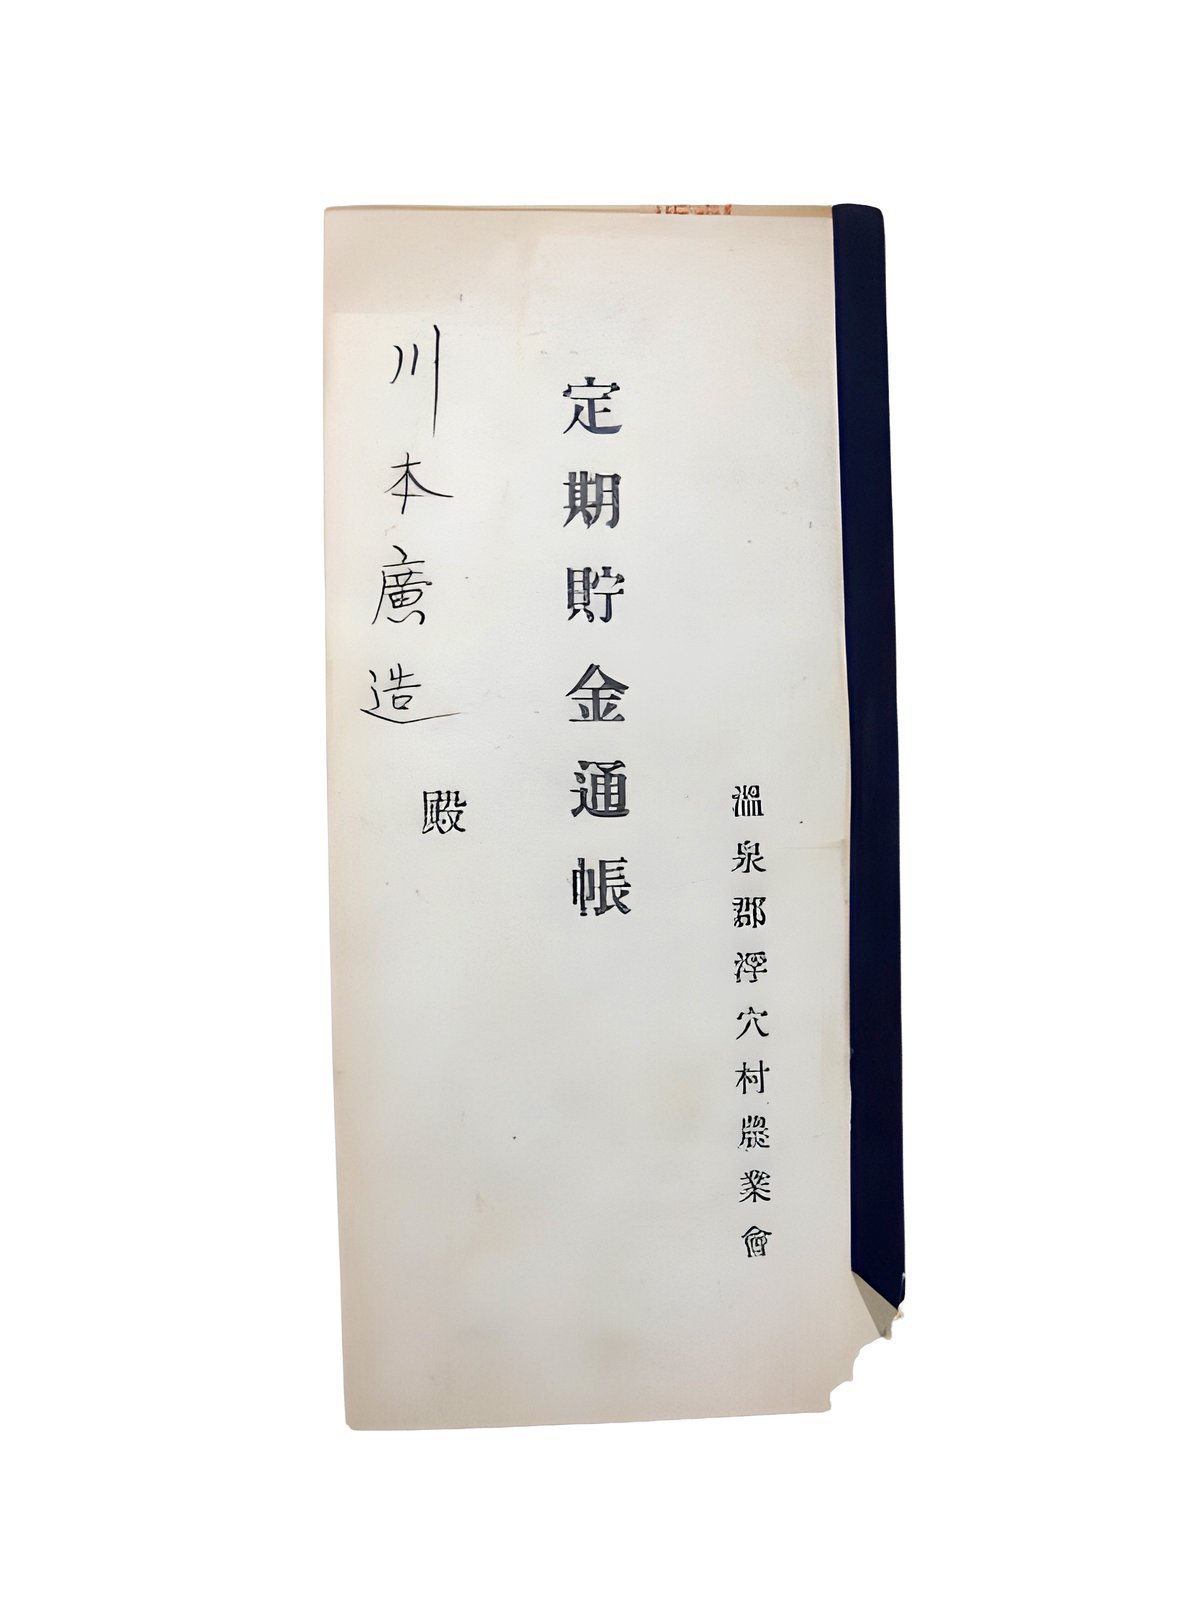 温泉郡浮穴村農業會
定期貯金通帳
川本廣造
殿